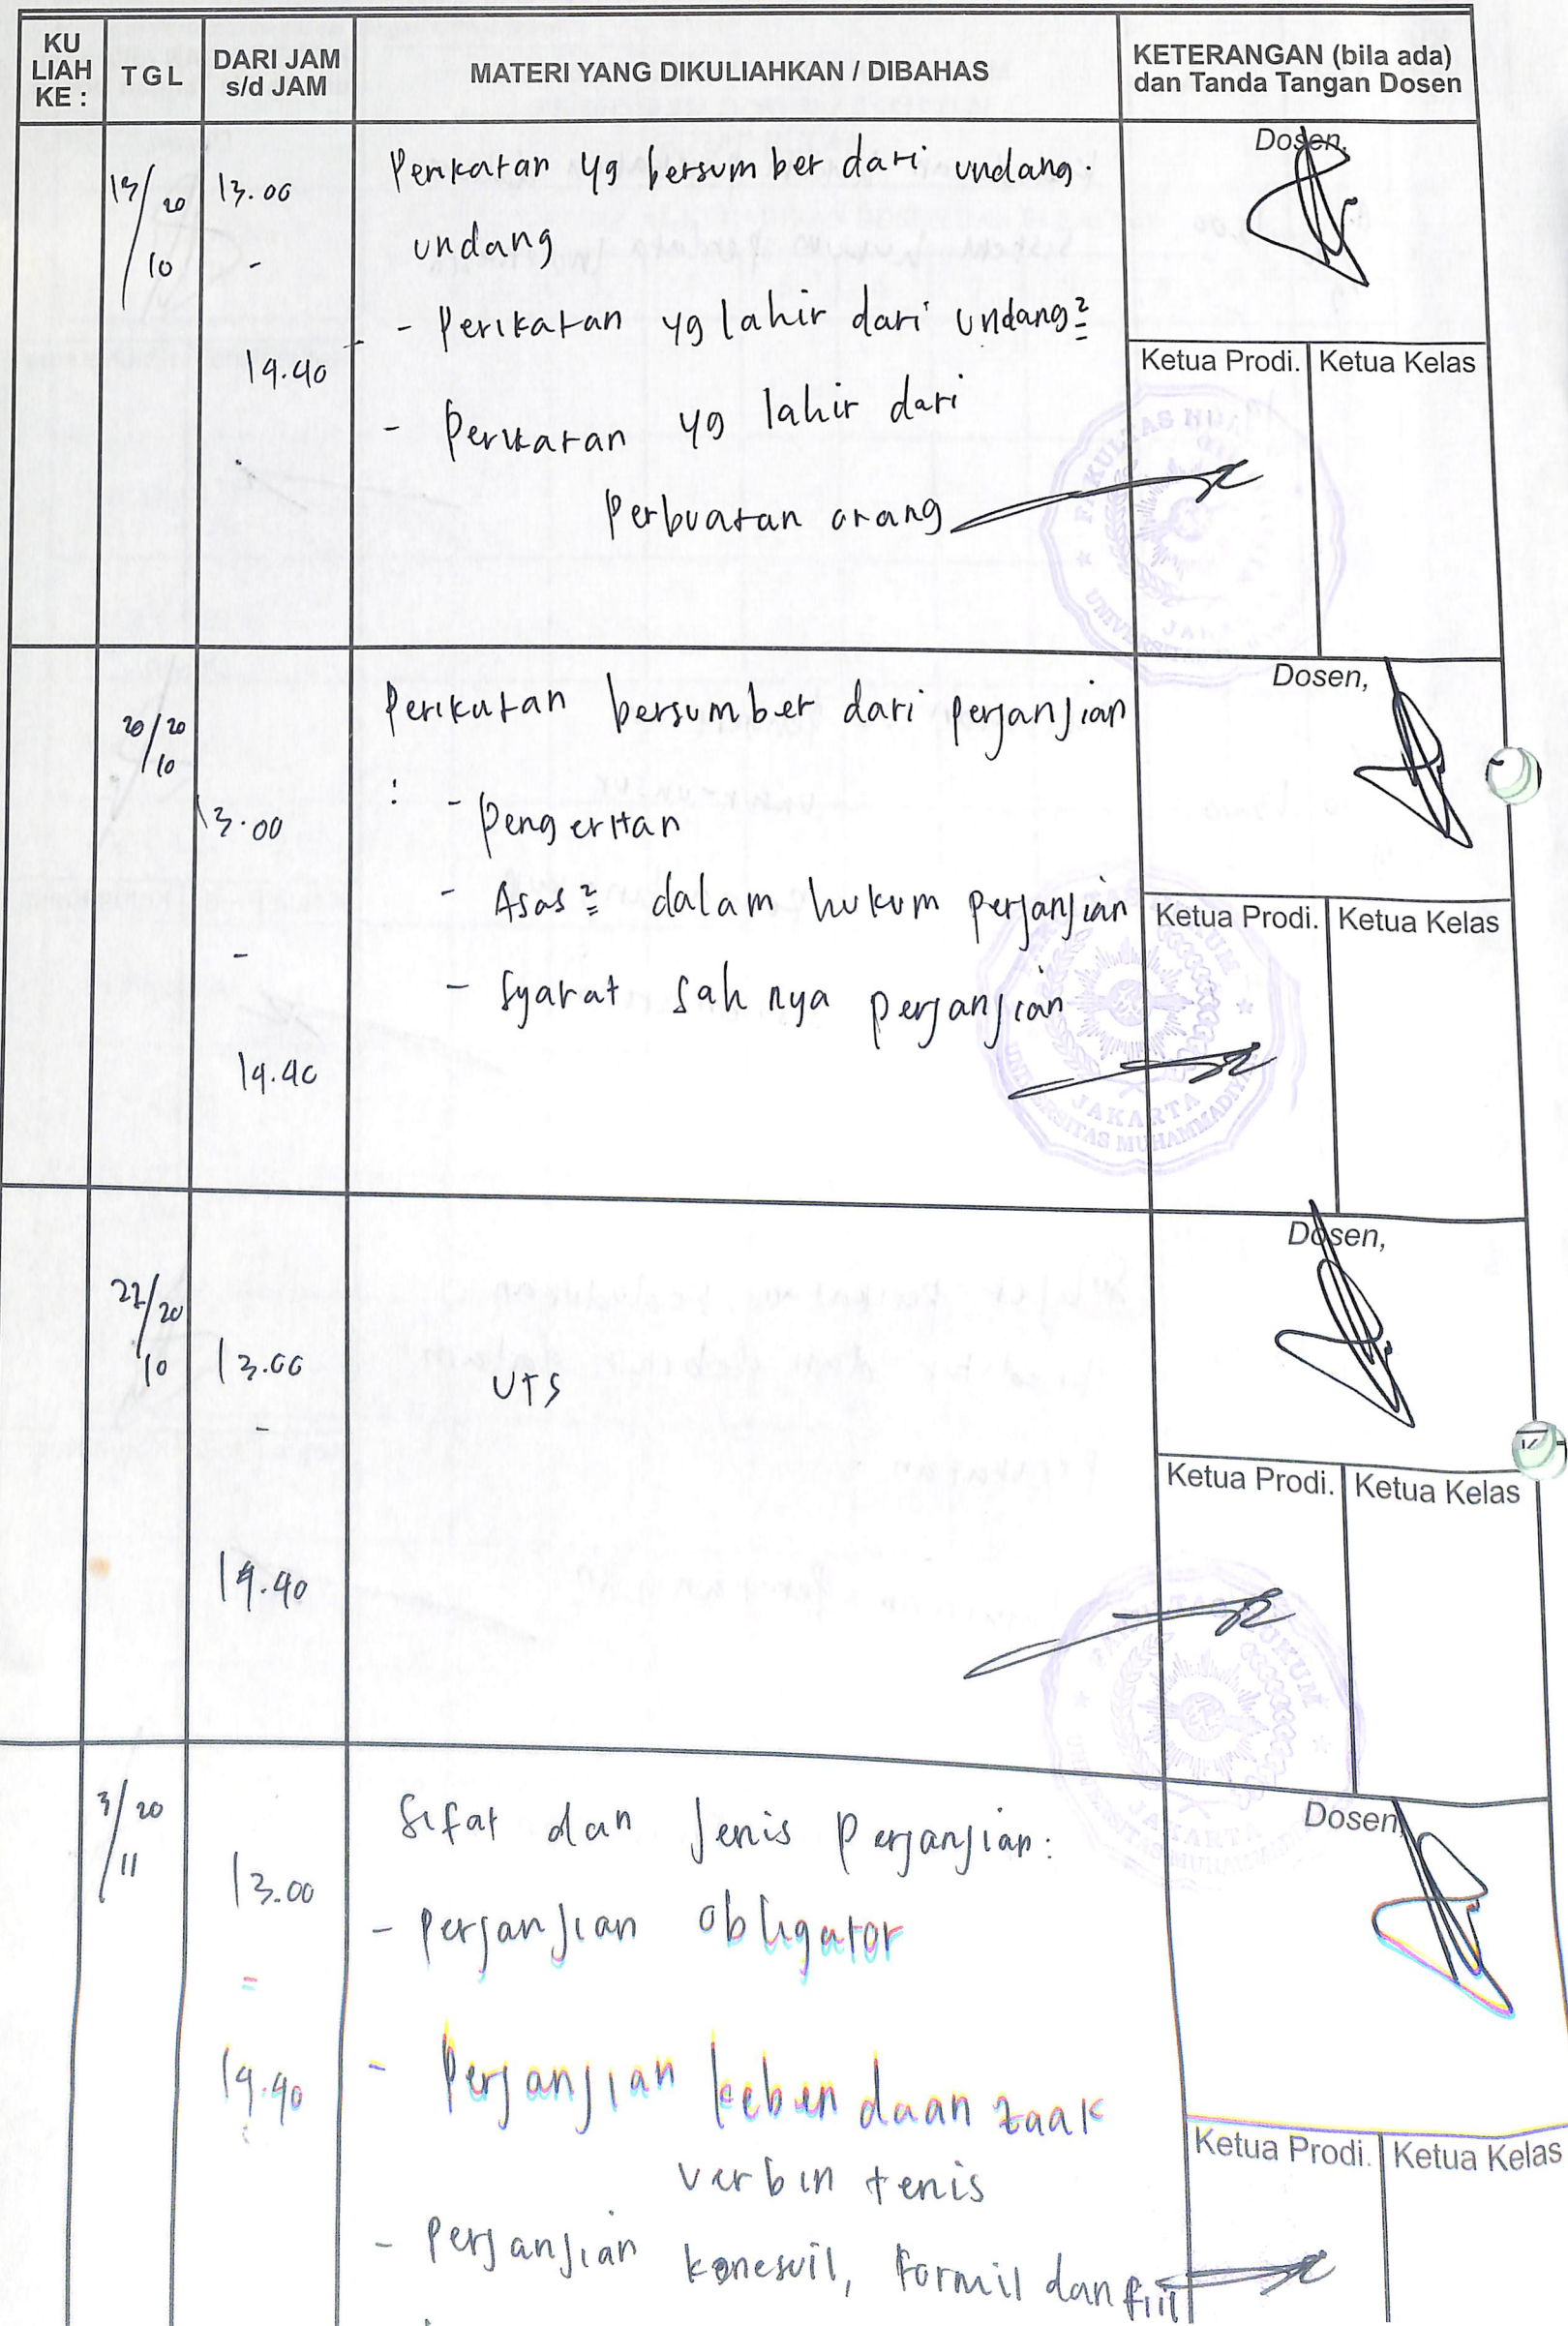 KU LIAH KE :
TGL
DARI JAM s/d JAM
MATERI YANG DIKULIAHKAN / DIBAHAS
KETERANGAN (bila ada) dan Tanda Tangan Dosen
13/20
10
13.00
-
14.40
Perikatan yg bersumber dari undang-
undang
- Perikatan yg lahir dari undang2
- Perikatan yg lahir dari
Perbuatan orang
Dosen,
Ketua Prodi.
Ketua Kelas
FAKULTAS HU
UNIVERSITAS
20/20
10
13.00
-
14.40
Perikatan bersumber dari perjanjian
: - Pengertian
- Asas2 dalam hukum perjanjian
- Syarat sah nya perjanjian
Dosen,
Ketua Prodi.
Ketua Kelas
JAKARTA
UNIVERSITAS MUHAMMADIYAH
27/20
10
13.00
-
14.40
UTS
Dosen,
Ketua Prodi.
Ketua Kelas
FAKULTAS HUKUM
UNIVERSITAS MUHAMMADIYAH
JAKARTA
3/20
11
13.00
=
14.40
Sifat dan Jenis Perjanjian:
- Perjanjian obligator
- Perjanjian kebendaan zaak
verbin tenis
- Perjanjian konesuil, Formil dan riil
Dosen,
Ketua Prodi.
Ketua Kelas